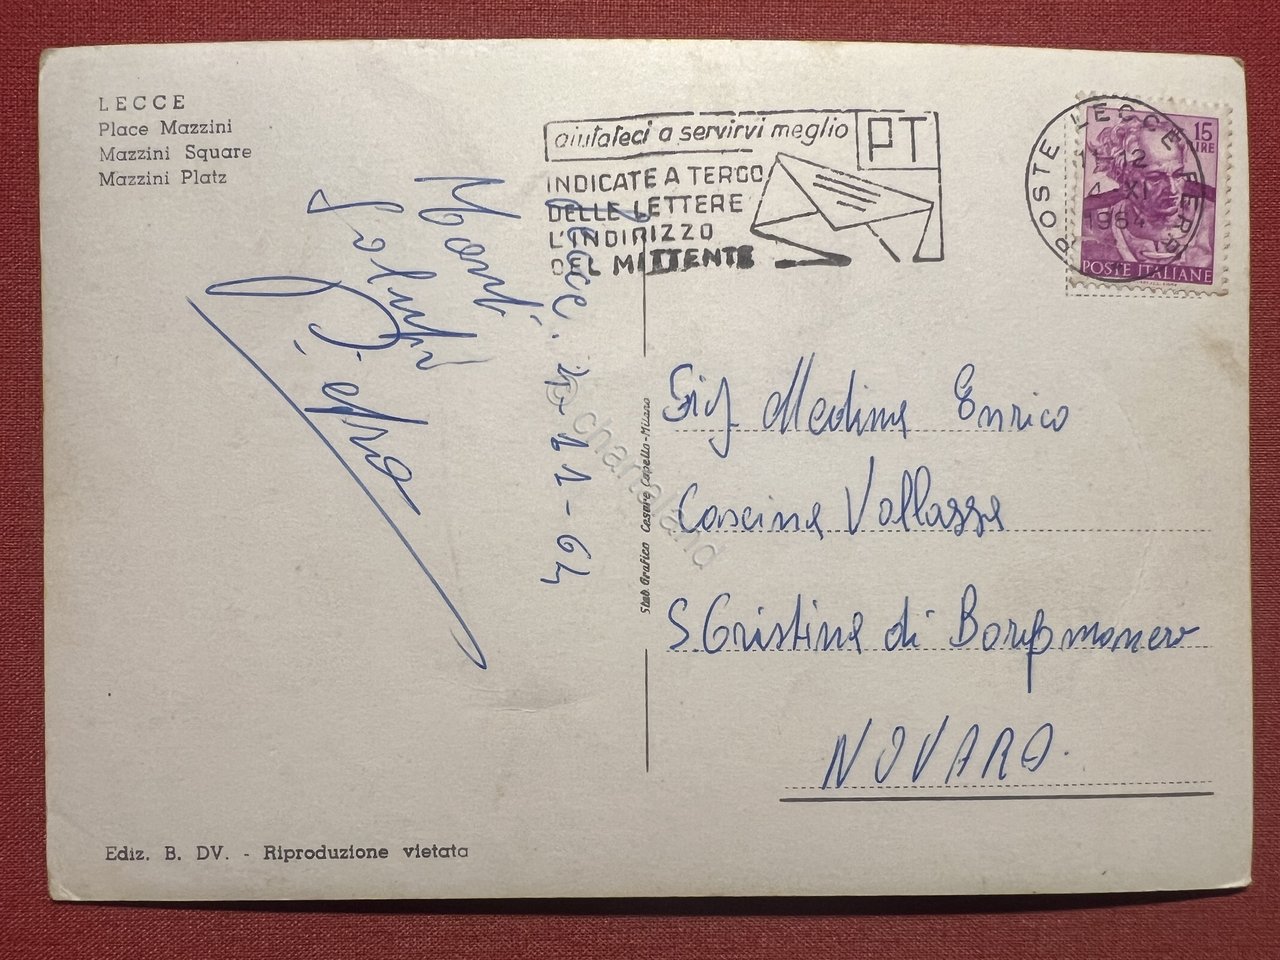 LECCE
Place Mazzini
Mazzini Square
Mazzini Platz
aiutateci a servirvi meglio
PT
INDICATE A TERGO
DELLE LETTERE
L'INDIRIZZO
DEL MITTENTE
POSTE LECCE FERR.
11-12
4 XI
1964
15
LIRE
POSTE ITALIANE
Lecce. 4-11-64
Saluti
Pietro
Stab. Grafico Cesare Capello - Milano
© chartaland
Sig Medina Enrico
Cascina Vallazza
S Cristina di Borgomanero
NOVARA.
Ediz. B. DV. - Riproduzione vietata